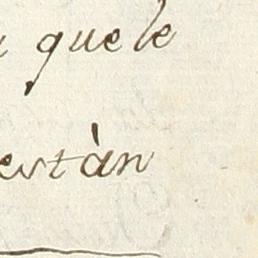 que le
estàn